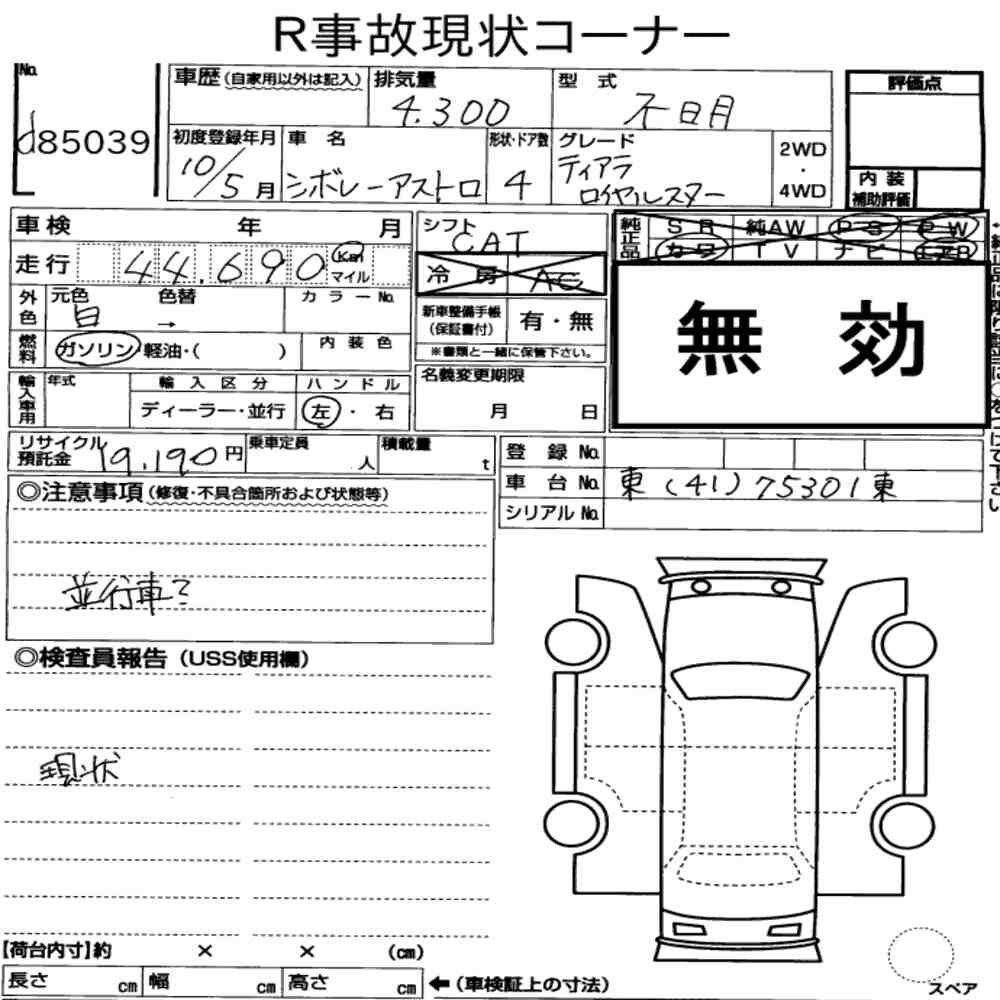 R事故現状コーナー
No.
d85039
車歴(自家用以外は記入)
排気量
4.300
型 式
不日月
評価点
初度登録年月
10/5月
車 名
シボレーアストロ
形状・ドア数
4
グレード
ティアラ
ロイヤルスター
2WD
・
4WD
内 装
補助評価
車検 年 月
シフト
CAT
純正品
SR 純AW PS PW
カワ TV ナビ エアB
走行 44.690 Km
マイル
冷 房 AC
無 効
外色
元色 色替
白 →
カ ラ ー No.
新車整備手帳
(保証書付)
有・無
※書類と一緒に保管下さい。
燃料
ガソリン・軽油・( )
内 装 色
輸入車用
年式
輸 入 区 分
ディーラー・並行
ハ ン ド ル
左・右
名義変更期限
月 日
リサイクル
預託金
19,190円
乗車定員
人
積載量
t
登 録 No.
車 台 No. 東(41)75301東
シリアル No.
◎注意事項(修復・不具合箇所および状態等)
並行車?
◎検査員報告(USS使用欄)
現状
【荷台内寸】約 × × (cm)
長さ cm 幅 cm 高さ cm ←(車検証上の寸法)
スペア